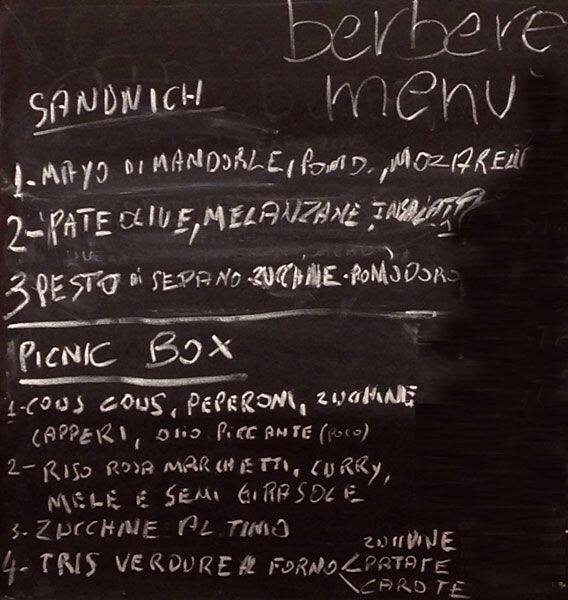 berbere
menu
SANDWICH
1- MAYO DI MANDORLE, POMO., MOZZARELLA
2- PATE OLIVE, MELANZANE, INSALATA
3 PESTO DI SEDANO ZUCCHINE - POMODORO
PICNIC BOX
1- COUS COUS, PEPERONI, ZUCCHINE
CAPPERI, OLIO PICCANTE (POCO)
2- RISO ROSA MARCHETTI, CURRY,
MELE E SEMI GIRASOLE
3- ZUCCHINE AL TIMO
4- TRIS VERDURE AL FORNO < ZUCCHINE
PATATE
CAROTE